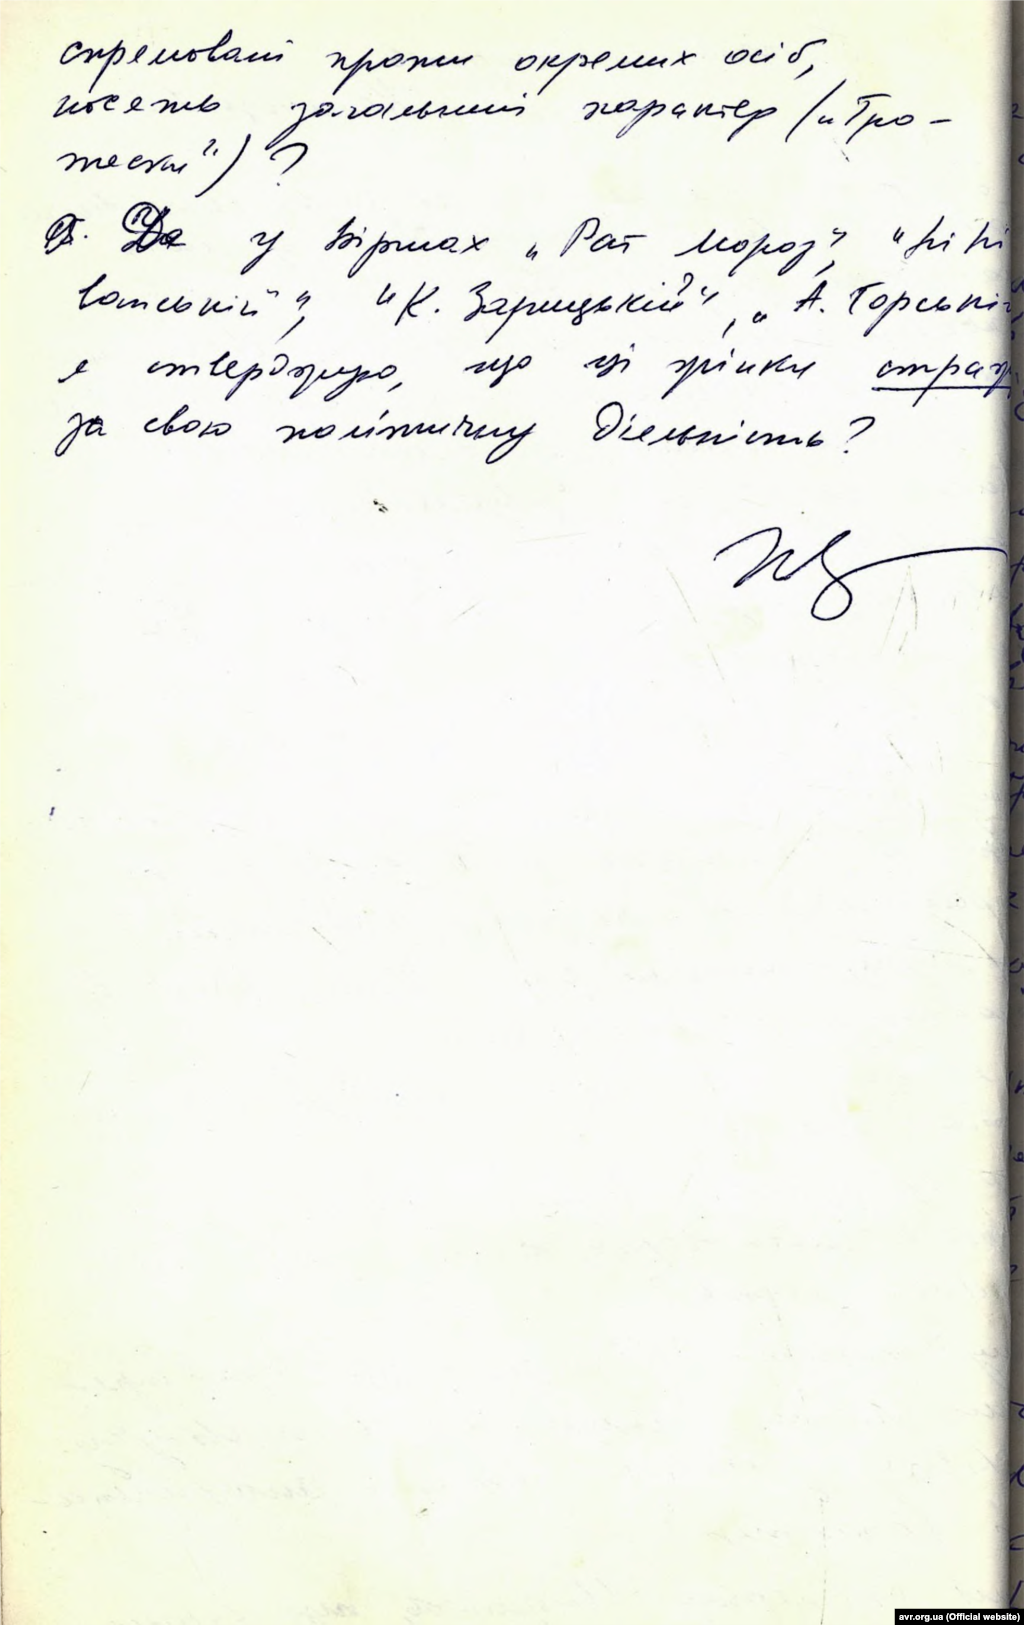 спрямовані проти окремих осіб,
носять загальний характер („Гро-
тески")?
у віршах „Рат Мороз",
"К. Зарицькій", „А. Горській
я стверджую, що ці жінки
за свою політичну діяльність?
avr.org.ua (Official website)